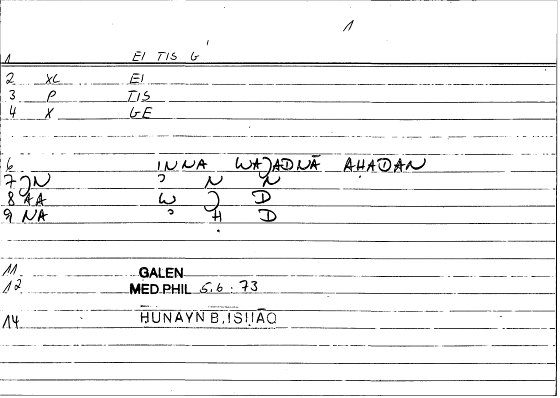 1
1 EI TIS G
2 XC EI
3 P TIS
4 X GE
6 INNA WAJADNĀ AḤADAN
7 JN ʾ N N
8 AA W J D
9 NA ʾ Ḥ D
11 GALEN
12 MED.PHIL 5,6 : 73
14 ḤUNAYN B. ISḤĀQ